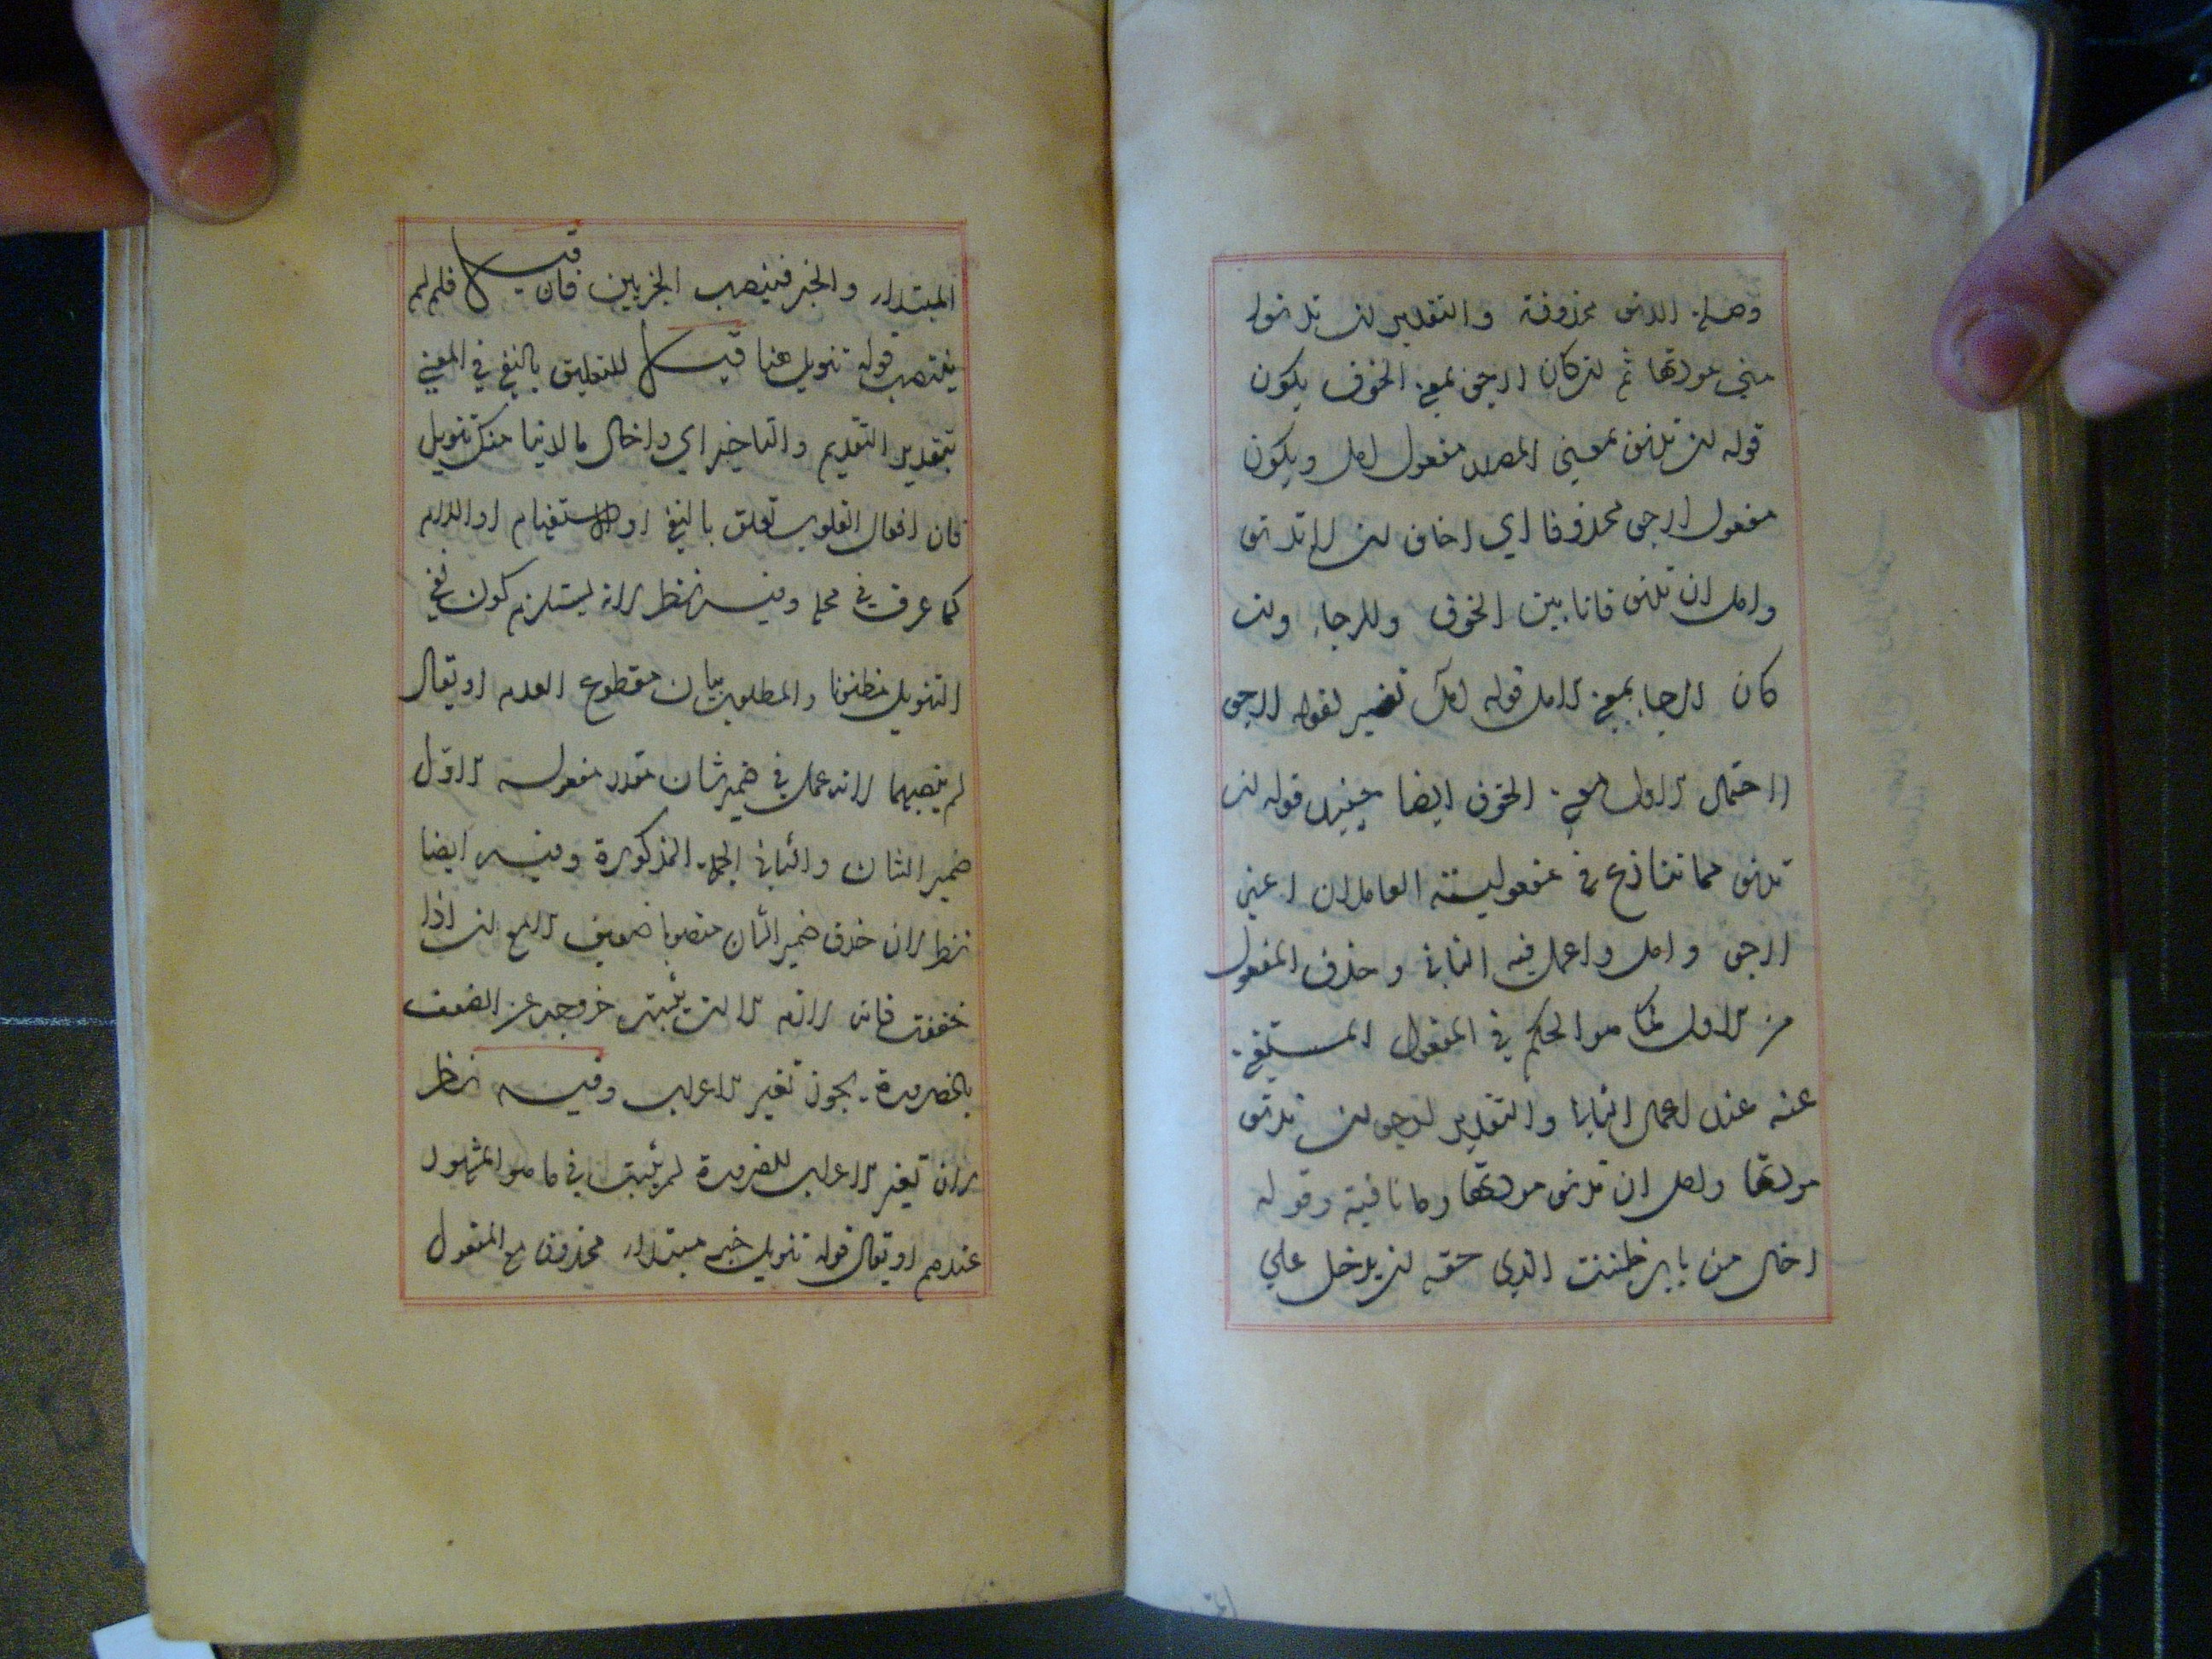 وصلة الدنو محذوفة والتقدير ان تدنوا
مني مودتها ثم ان كان ارجو بمعنى الخوف يكون
قوله ان تدنو بمعنى المصدر مفعول امل ويكون
مفعول ارجو محذوفا اي اخاف ان لا تدنو
وامل ان تدنو فانا بين الخوف والرجاء وان
كان الرجاء بمعنى الامل قوله امل تفسير لقوله ارجو
الاحتمال الاول معنى الخوف ايضا حينئذ قوله ان
تدنو مما تنازع في مفعوليته العاملان اعني
ارجو وامل واعمل فيه الثاني وحذف المفعول
من الاول كما هو الحكم في المفعول المستغنى
عنه عند اعمال الثاني والتقدير ارجو ان تدنو
مودتها وامل ان تدنو مودتها وما نافية وقوله
اخال من باب ظننت الذي حقه ان يدخل على
المبتداء والخبر فينصب الجزيين فان قيل فلم لم
ينتصب قوله تنويل هنا قيل للتعليق بالنفي في المعنى
بتقدير التقديم والتاخير اي واخال ما لدنيا منك تنويل
فان افعال القلوب تعلق بالنفي او الاستفهام او اللام
كما عرف في محله وفيه نظر لانه يستلزم كون نفي
التنويل مظنونا والمطلوب بيان مقطوع العدم او يقال
لم ينصبهما لانه عمل في ضمير شان مقدر مفعوله الاول
ضمير الشان والثاني الجملة المذكورة وفيه ايضا
نظر لان حذف ضمير الشان منصوبا ضعيف الا مع ان اذا
خففت فانه لازم الا ان يثبت خروجه عن الضعف
بالضرورة يجوز تغير الاعراب وفيه نظر
لان تغير الاعراب للضرورة لم يثبت في ما هو المشهور
عندهم او يقال قوله تنويل خبر مبتداء محذوف مع المفعول